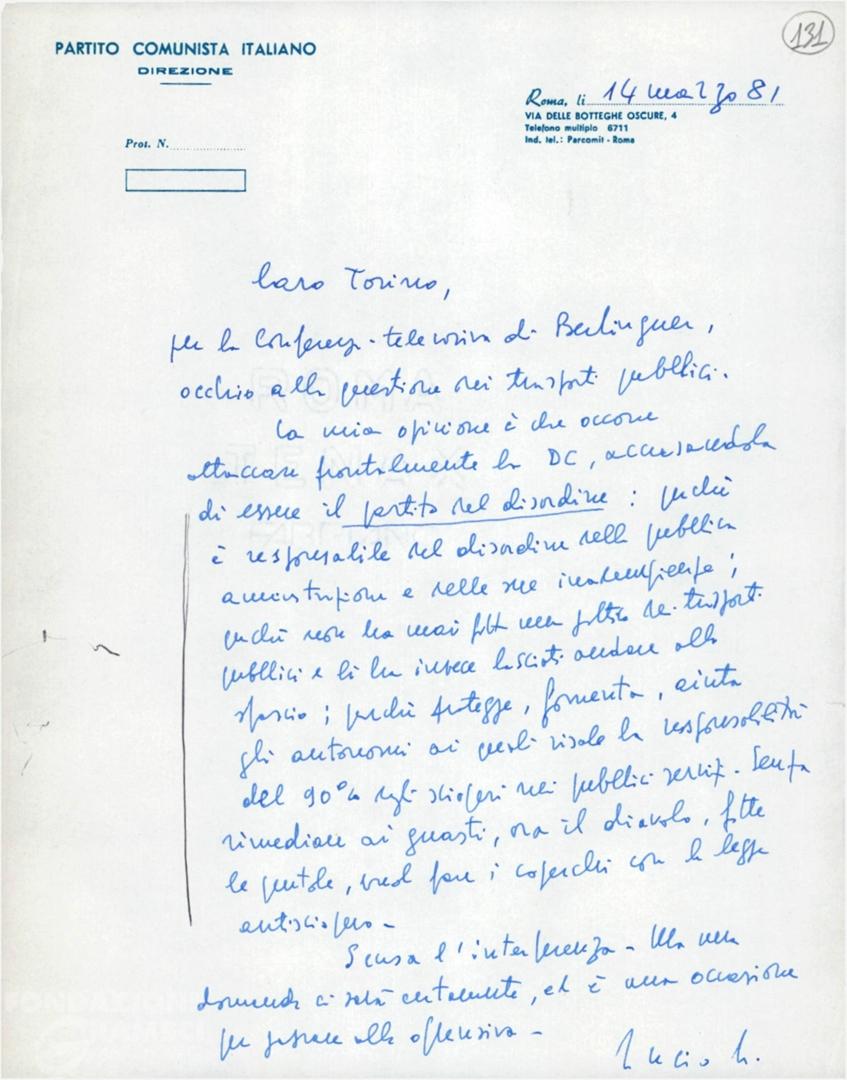 131
PARTITO COMUNISTA ITALIANO
DIREZIONE
Roma, li 14 marzo 81
VIA DELLE BOTTEGHE OSCURE, 4
Telefono multiplo 6711
Ind. tel.: Parcomit - Roma
Prot. N.
Caro Tonino,
per la Conferenza-televisiva di Berlinguer,
occhio alla questione dei trasporti pubblici.
La mia opinione è che occorre
attaccare frontalmente la DC, accusandola
di essere il partito del disordine : perché
è responsabile del disordine nella pubblica
amministrazione e nelle sue inadempienze ;
perché non ha mai fatto una politica dei trasporti
pubblici e li ha invece lasciati andare allo
sfascio ; perché protegge, fomenta, aiuta
gli autonomi ai quali risale la responsabilità
del 90% degli scioperi nei pubblici servizi. Senza
rimediare ai guasti, ora il diavolo, fatte
le pentole, vuol fare i coperchi con la legge
antisciopero -
Scusa l'interferenza - Ma una
domanda ci sarà certamente, ed è una occasione
per passare alla offensiva -
Lucio L.
FONDAZIONE
GRAMSCI